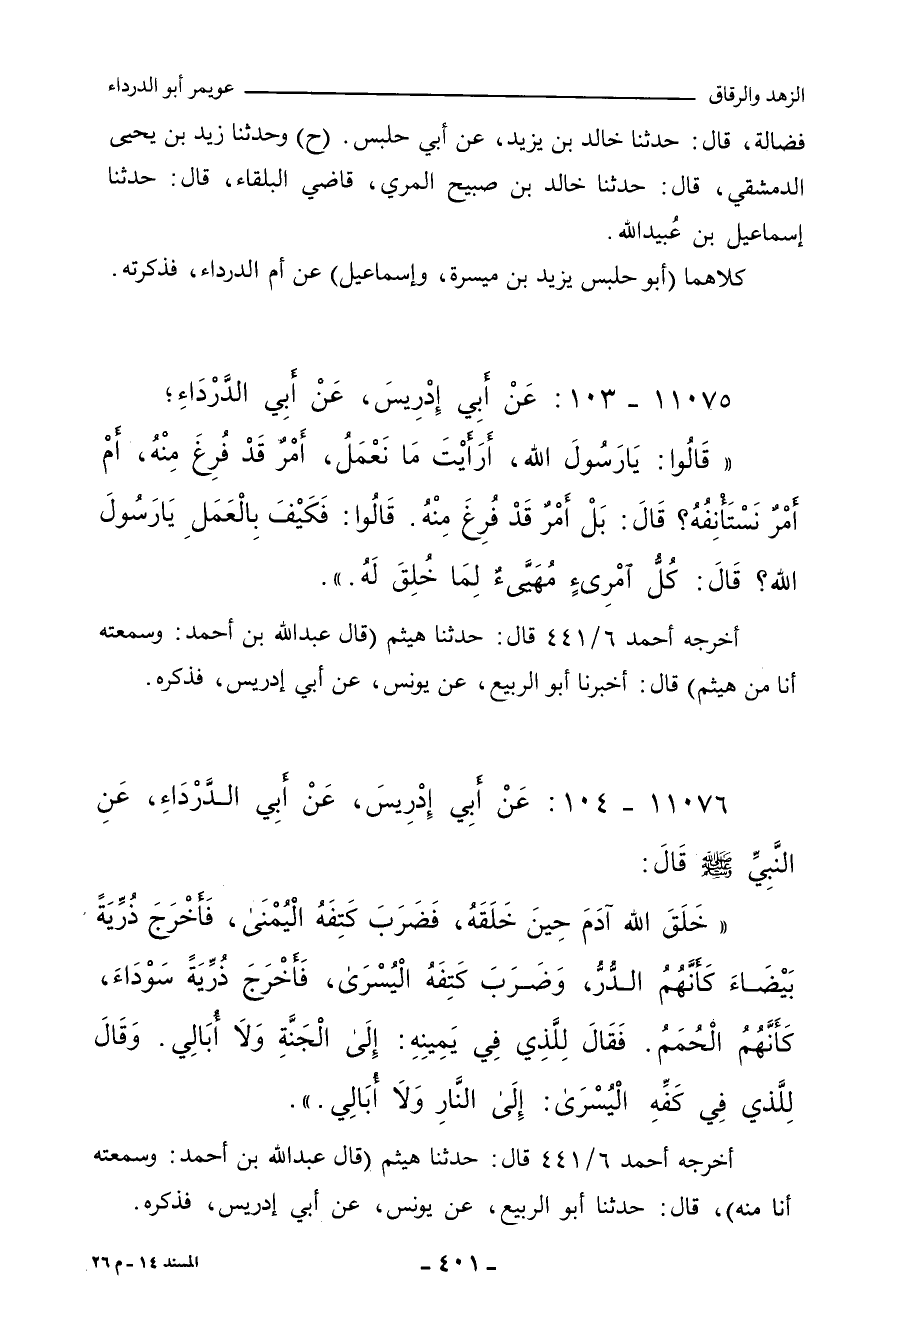 الزهد والرقاق ــــــــــــــــــــ عويمر أبو الدرداء
فضالة، قال: حدثنا خالد بن يزيد، عن أبي حلبس. (ح) وحدثنا زيد بن يحيى
الدمشقي، قال: حدثنا خالد بن صبيح المري، قاضي البلقاء، قال: حدثنا
إسماعيل بن عُبيدالله.
كلاهما (أبو حلبس يزيد بن ميسرة، وإسماعيل) عن أم الدرداء، فذكرته.
١١٠٧٥ - ١٠٣: عَنْ أَبِي إِدْرِيسَ، عَنْ أَبِي الدَّرْدَاءِ؛
« قَالُوا: يَارَسُولَ الله، أَرَأَيْتَ مَا نَعْمَلُ، أَمْرٌ قَدْ فُرِغَ مِنْهُ، أَمْ
أَمْرٌ نَسْتَأْنِفُهُ؟ قَالَ: بَلْ أَمْرٌ قَدْ فُرِغَ مِنْهُ. قَالُوا: فَكَيْفَ بِالْعَمَلِ يَارَسُولَ
الله؟ قَالَ: كُلُّ ٱمْرِىءٍ مُهَيَّىءٌ لِمَا خُلِقَ لَهُ.».
أخرجه أحمد ٤٤١/٦ قال: حدثنا هيثم (قال عبدالله بن أحمد: وسمعته
أنا من هيثم) قال: أخبرنا أبو الربيع، عن يونس، عن أبي إدريس، فذكره.
١١٠٧٦ - ١٠٤: عَنْ أَبِي إِدْرِيسَ، عَنْ أَبِي الـدَّرْدَاءِ، عَنِ
النَّبِيِّ ﷺ قَالَ:
« خَلَقَ الله آدَمَ حِينَ خَلَقَهُ، فَضَرَبَ كَتِفَهُ الْيُمْنَىٰ، فَأَخْرَجَ ذُرِّيَةً
بَيْضَـاءَ كَأَنَّهُمُ الـدُّرُّ، وَضَـرَبَ كَتِفَهُ الْيُسْرَىٰ، فَأَخْرَجَ ذُرِّيَةً سَوْدَاءَ،
كَأَنَّهُمُ الْحُمَمُ. فَقَالَ لِلَّذِي فِي يَمِينِهِ: إِلَىٰ الْجَنَّةِ وَلَا أُبَالِي. وَقَالَ
لِلَّذي فِي كَفِّهِ الْيُسْرَىٰ: إِلَىٰ النَّارِ وَلَا أُبَالِي.».
أخرجه أحمد ٤٤١/٦ قال: حدثنا هيثم (قال عبدالله بن أحمد: وسمعته
أنا منه)، قال: حدثنا أبو الربيع، عن يونس، عن أبي إدريس، فذكره.
- ٤٠١ -
المسند ١٤ - م ٢٦